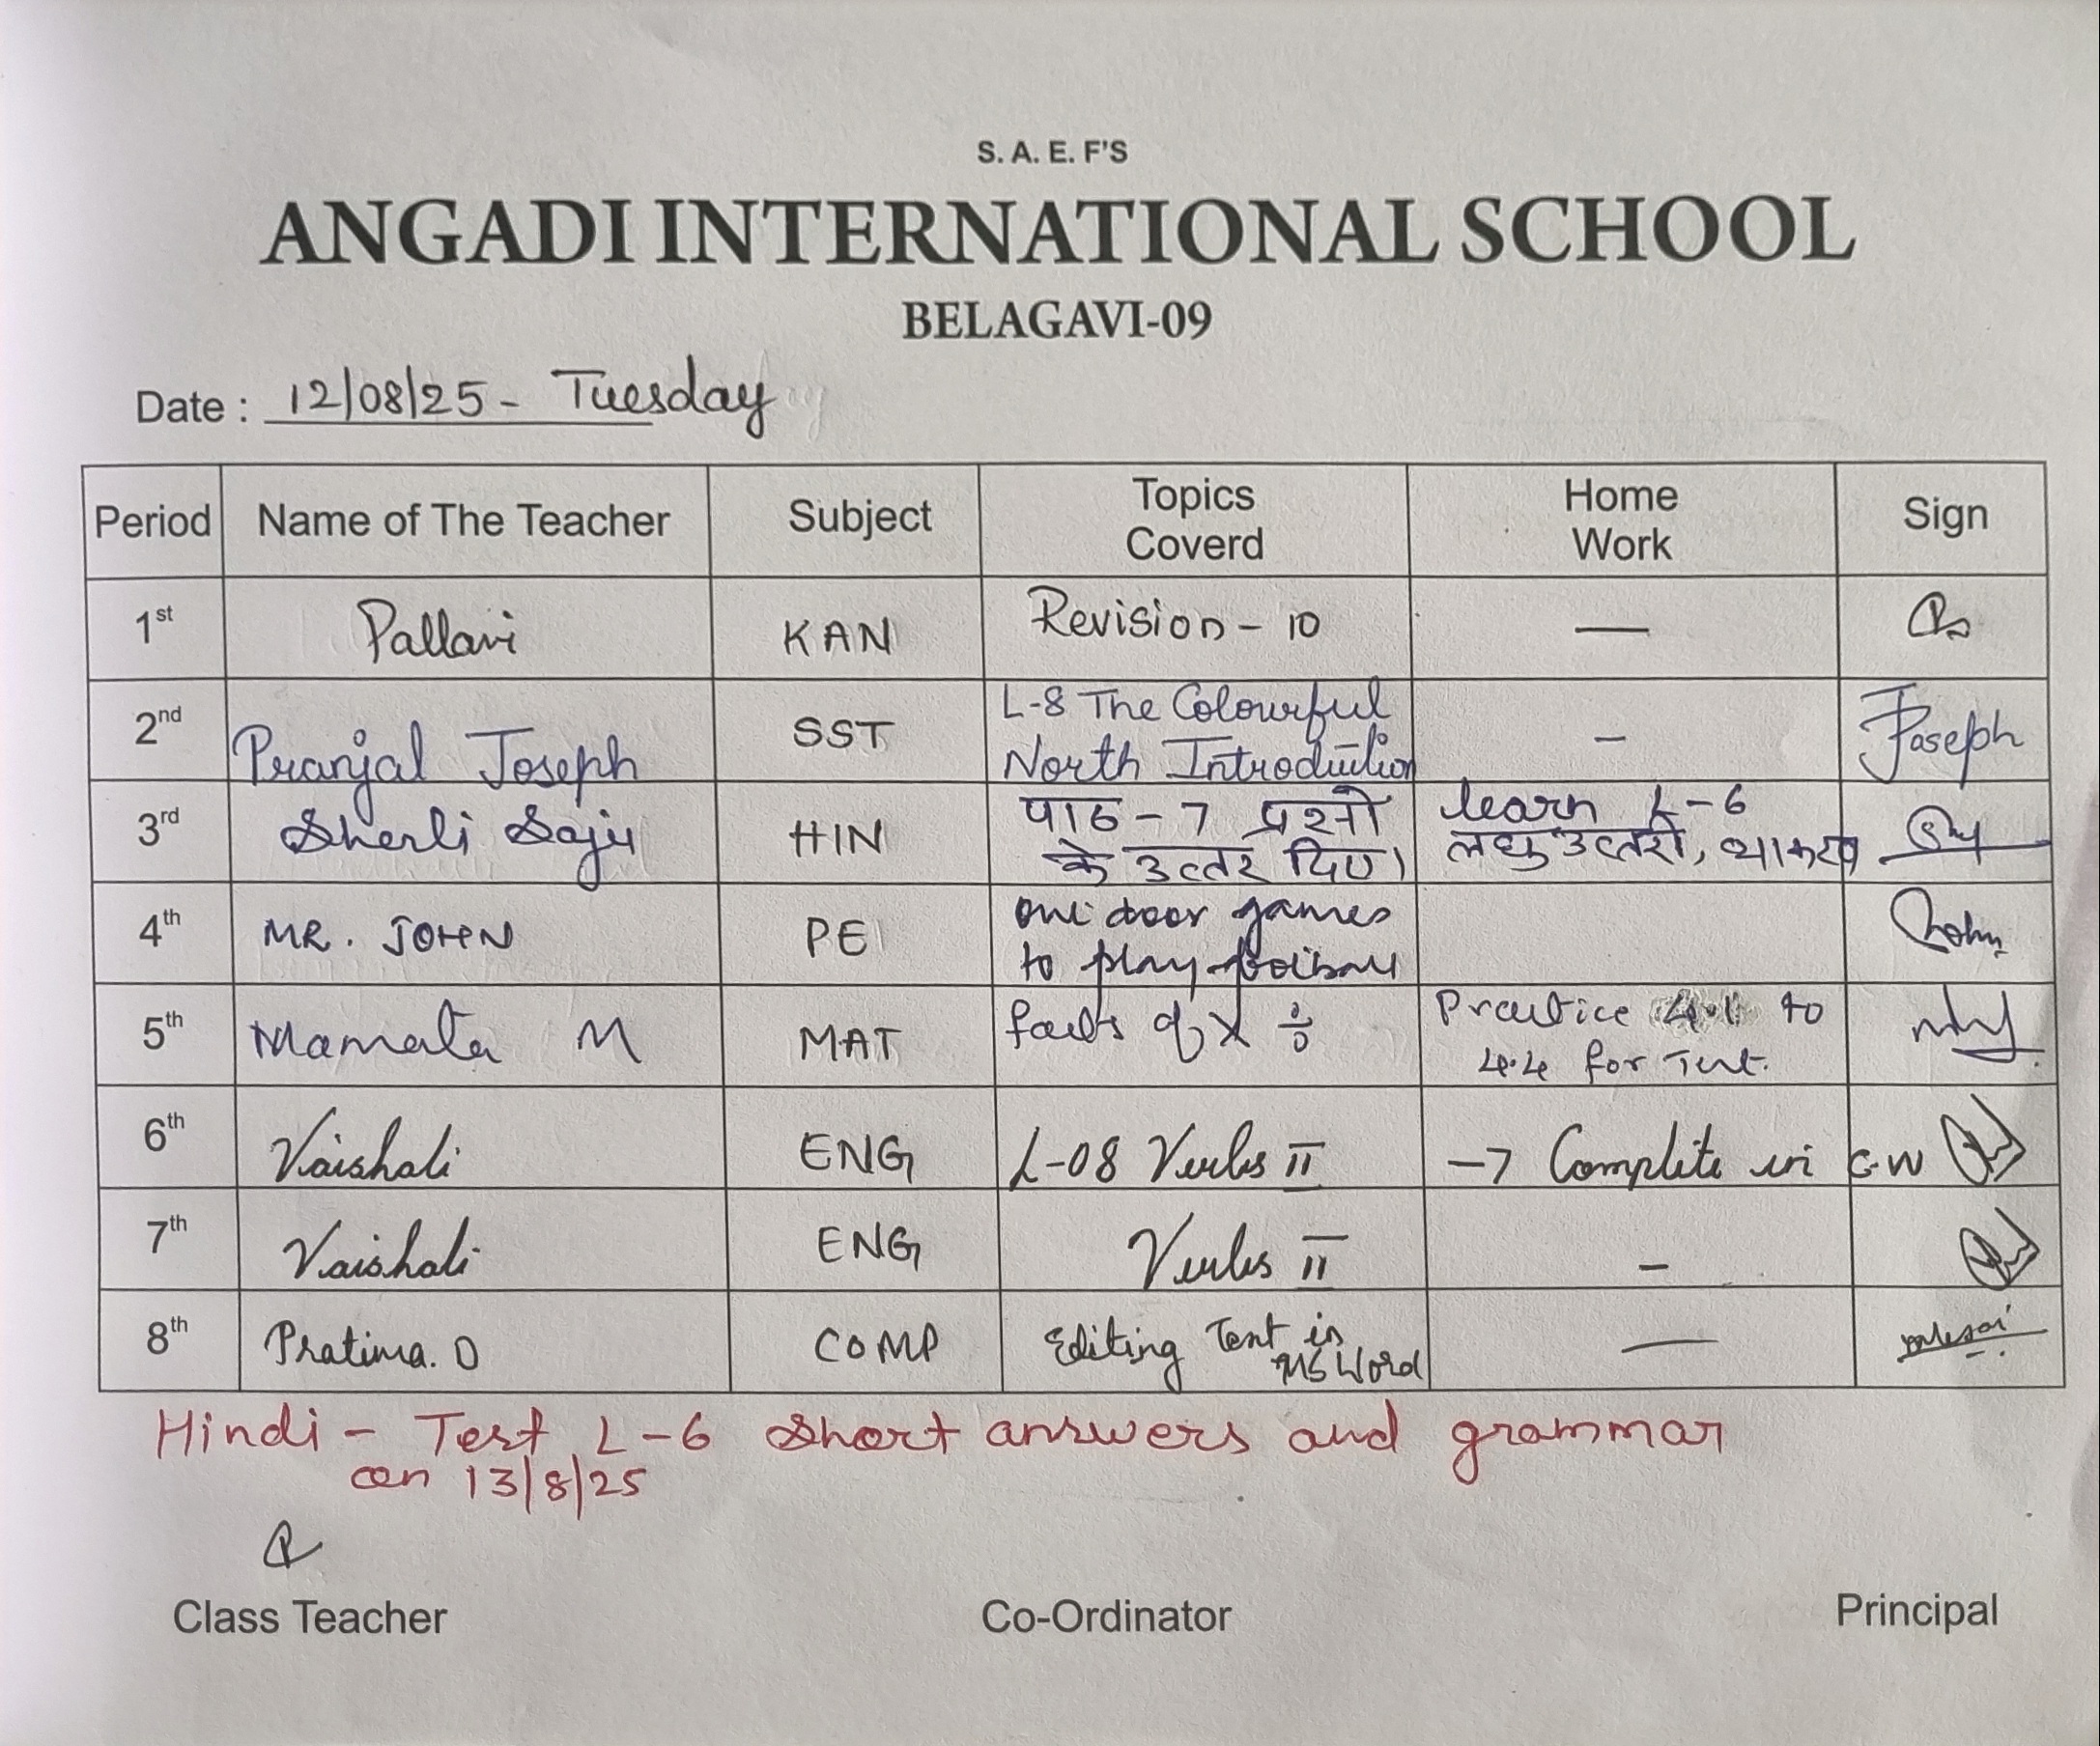 S. A. E. F'S
ANGADI INTERNATIONAL SCHOOL
BELAGAVI-09
Date : 12/08/25 - Tuesday
Period Name of The Teacher Subject Topics Coverd Home Work Sign
1st Pallavi KAN Revision - 10 —
2nd Pranjal Joseph SST L-8 The Colourful North Introduction - Joseph
3rd Sherli Saju HIN पाठ - 7 प्रश्नो के उत्तर दिए। learn L-6 लघु उत्तरी,
4th MR. JOHN PE door games to play football John
5th Mamata M MAT facts of × ÷ Practice 4.1 to 4.4 for Test.
6th Vaishali ENG L-08 Verbs II → Complete in C.W
7th Vaishali ENG Verbs II -
8th Pratima. D COMP Editing Text in MS Word —
Hindi - Test L-6 Short answers and grammar
on 13/8/25
Class Teacher Co-Ordinator Principal